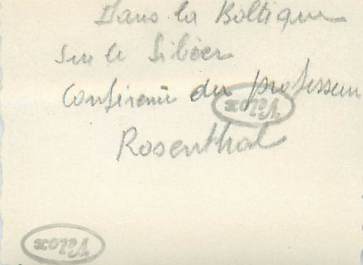 Dans la Baltique
sur le Sibier
Conférence du professeur
Rosenthal
Velox
Velox